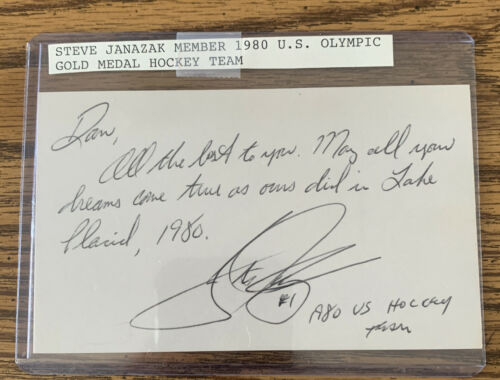 STEVE JANAZAK MEMBER 1980 U.S. OLYMPIC
GOLD MEDAL HOCKEY TEAM
Dan,
All the best to you. May all your
dreams come true as ours did in Lake
Placid, 1980.
#1
US HOCKEY